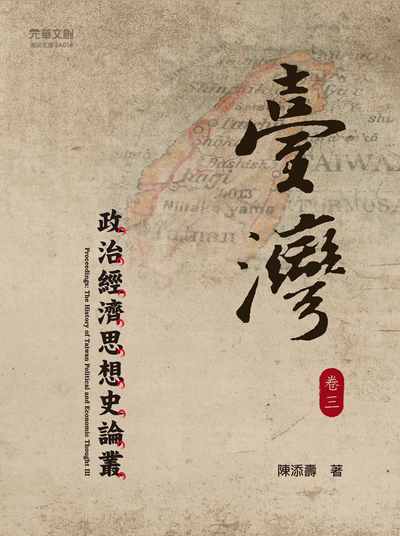 元華文創
臺灣
政治經濟思想史論叢
Proceedings: The History of Taiwan Political and Economic Thought III
卷三
陳添壽 著
TAIWAN
FORMOSA
Niitaka Yama